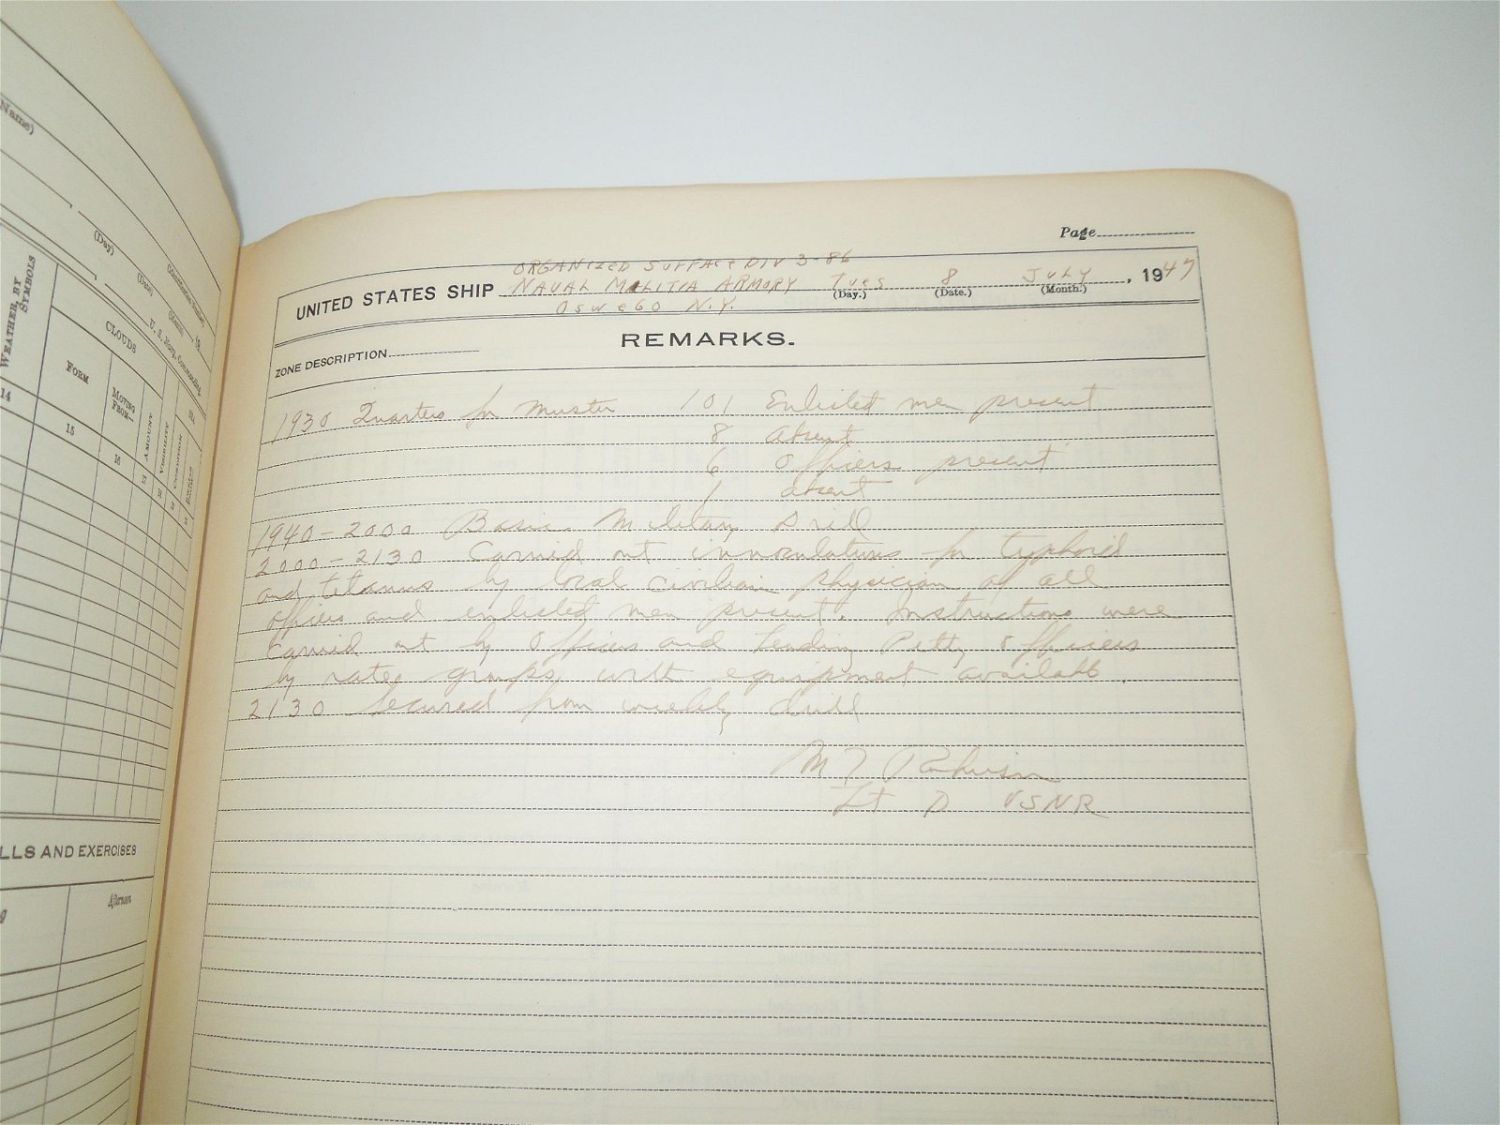 (Name)
(Day)
(Date)
(Identification Number)
(Month)
, 19
U. S. Navy, Commanding.
WEATHER, BY SYMBOLS
CLOUDS
FORM
MOVING FROM—
AMOUNT
VISIBILITY
CONDITION
14
15
16
LLS AND EXERCISES
Afternoon
Page
ORGANIZED SURFACE DIV 3-86
UNITED STATES SHIP NAVAL MILITIA ARMORY Tues 8 JULY , 1947
(Day.) (Date.) (Month.)
OSWEGO N.Y.
REMARKS.
ZONE DESCRIPTION
1930 Quarters for Muster 101 Enlisted men present
8 absent
6 Officers present
1 absent
1940-2000 Basic Military Drill
2000-2130 Carried out innoculations for typhoid
and tetanus by local civilian physician of all
officers and enlisted men present. Instructions were
carried out by Officers and leading Petty Officers
by rates groups with equipment available.
2130 Secured from weekly drill
M
Lt D USNR